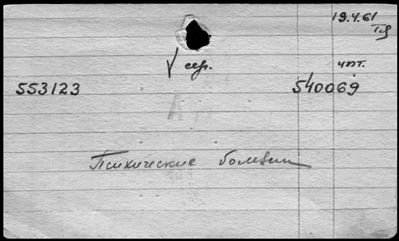 19.4.61
сер.
чит.
553123
540069
Психические болезни